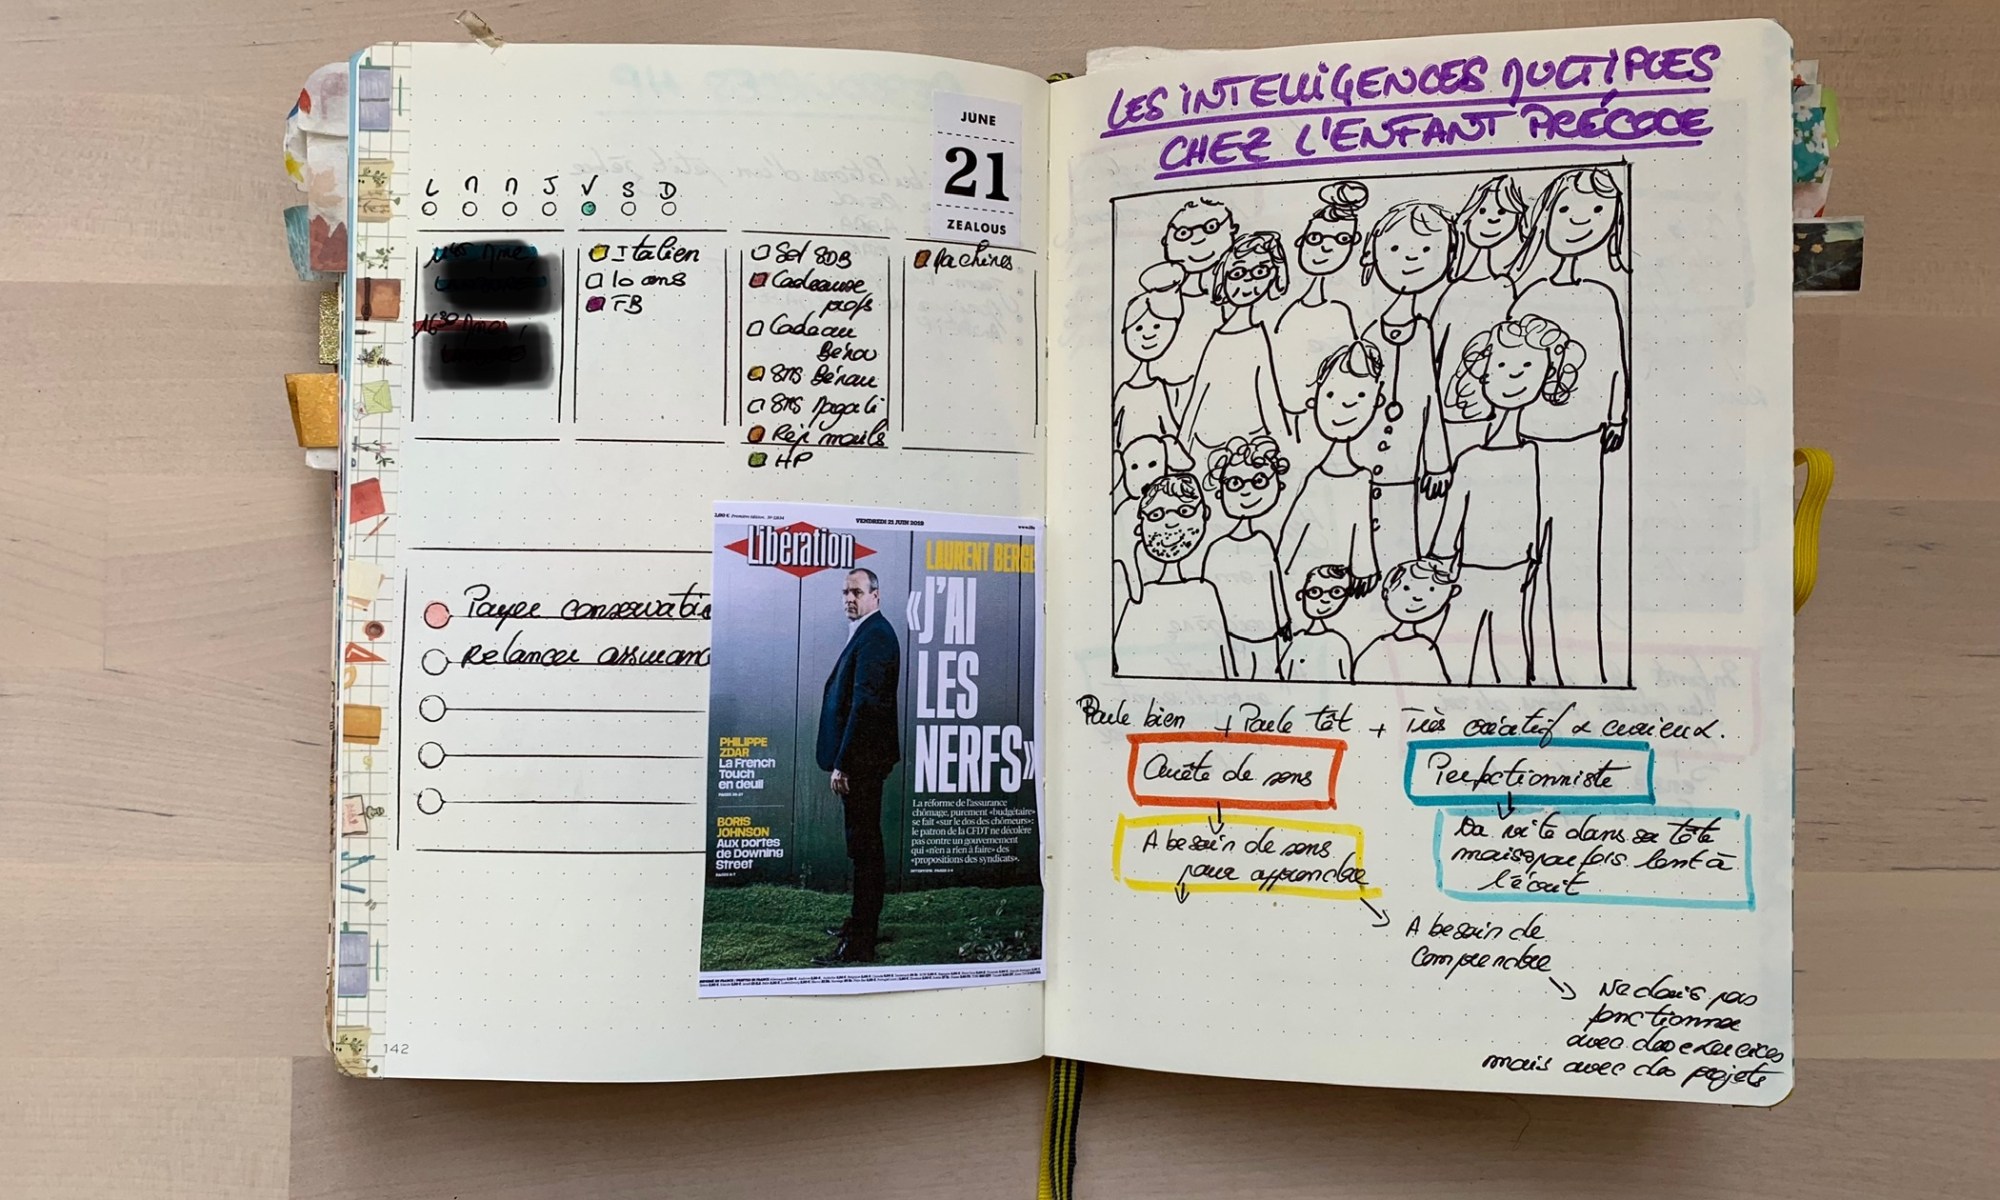 JUNE
21
ZEALOUS
L M M J V S D
Italien
10 ans
FB
Set SDB
Cadeaux
profs
Cadeau
Bérou
SMS Bérou
SMS Magali
Rép mails
HP
Machines
Payer conservatio
Relancer assuranc
VENDREDI 21 JUIN 2019
Libération
LAURENT BERGE
«J'AI
LES
NERFS»
La réforme de l'assurance
chômage, purement «budgétaire»
se fait «sur le dos des chômeurs»:
le patron de la CFDT ne décolère
pas contre un gouvernement
qui «n'en a rien à faire» des
«propositions des syndicats».
PHILIPPE
ZDAR
La French
Touch
en deuil
BORIS
JOHNSON
Aux portes
de Downing
Street
142
LES INTELLIGENCES MULTIPLES
CHEZ L'ENFANT PRÉCOCE
Parle bien + Parle tôt + Très créatif & curieux.
Quête de sens
Perfectionniste
A besoin de sens
pour apprendre
Va vite dans sa tête
mais parfois lent à
l'écrit
A besoin de
comprendre
Ne dois pas
fonctionner
avec des exercices
mais avec des projets